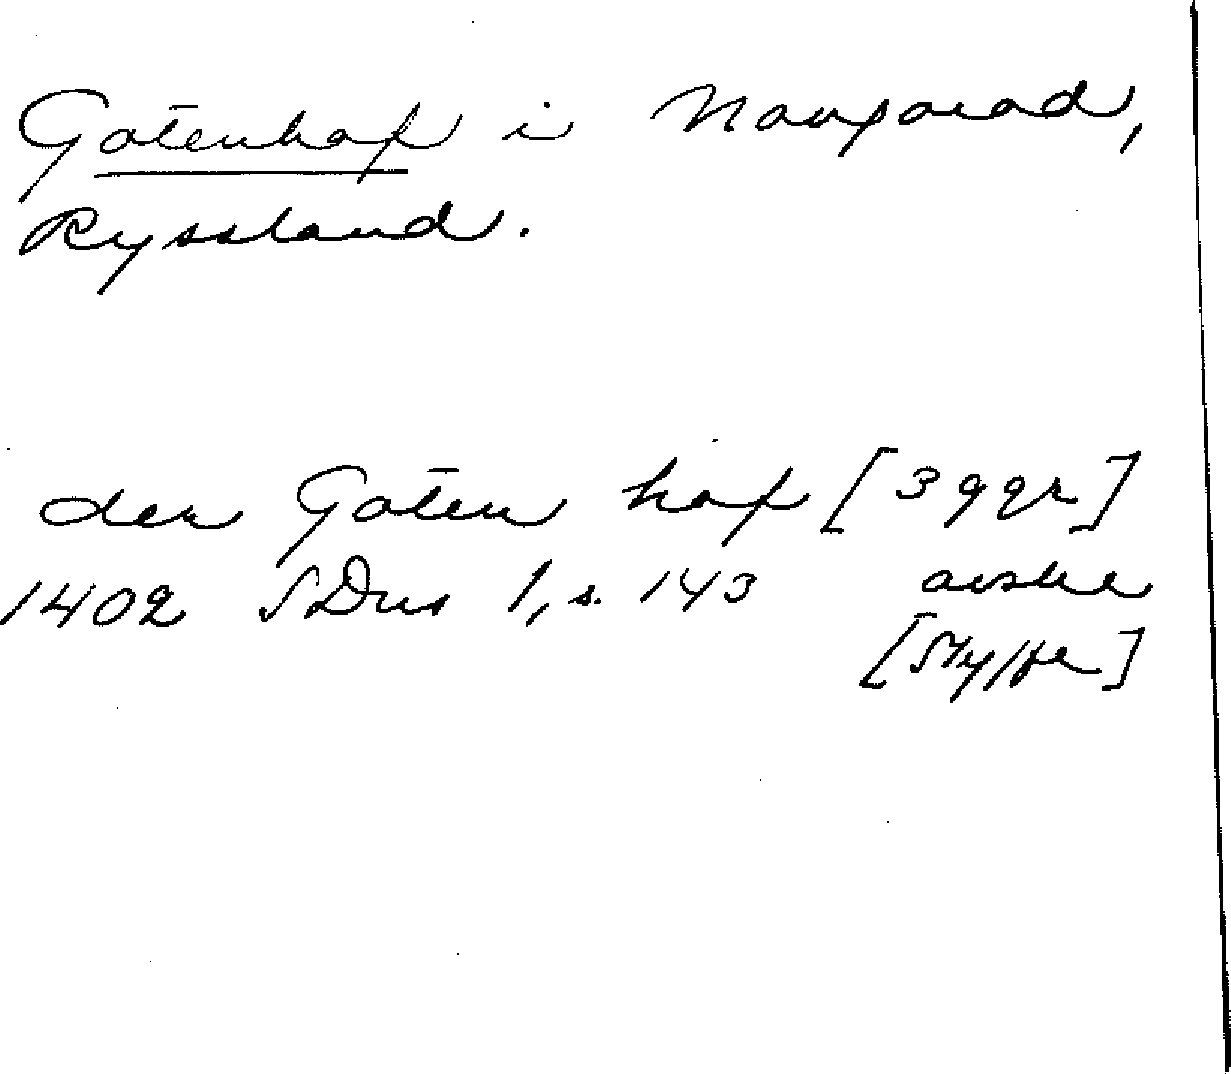 Gotenhof i Novgorod,
Ryssland.
den Goten hof [3 ggr]
1402 SDns 1, s. 143 avskr
[Styffe]